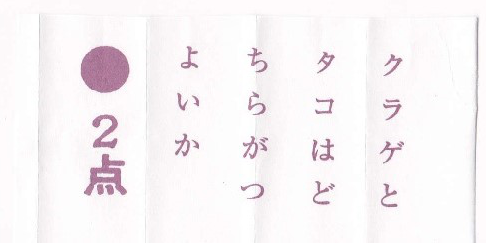 クラゲと
タコはど
ちらがつ
よいか
●2点